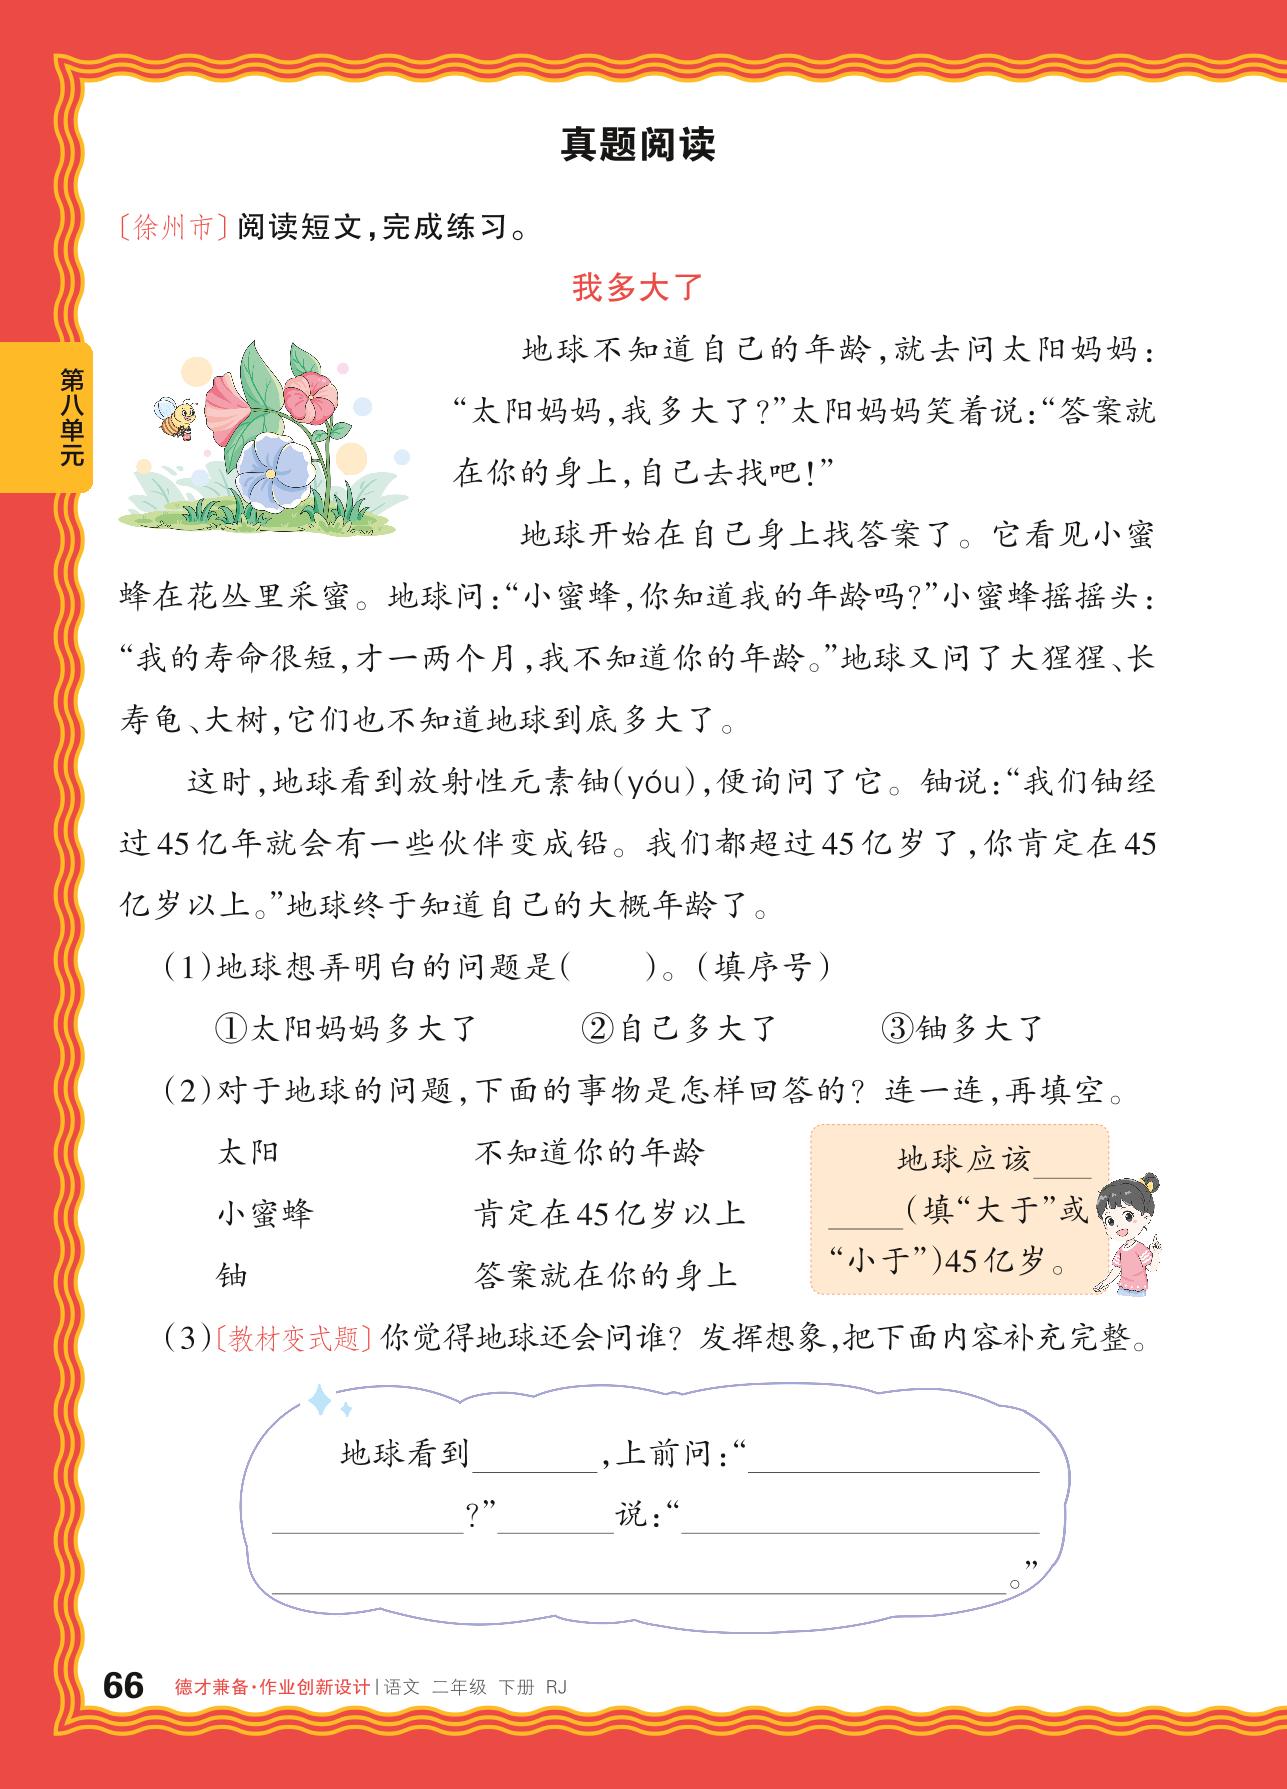 真题阅读
〔徐州市〕阅读短文，完成练习。
我多大了
第八单元
地球不知道自己的年龄，就去问太阳妈妈：
“太阳妈妈，我多大了？”太阳妈妈笑着说：“答案就
在你的身上，自己去找吧！”
地球开始在自己身上找答案了。它看见小蜜
蜂在花丛里采蜜。地球问：“小蜜蜂，你知道我的年龄吗？”小蜜蜂摇摇头：
“我的寿命很短，才一两个月，我不知道你的年龄。”地球又问了大猩猩、长
寿龟、大树，它们也不知道地球到底多大了。
这时，地球看到放射性元素铀(yóu)，便询问了它。铀说：“我们铀经
过45亿年就会有一些伙伴变成铅。我们都超过45亿岁了，你肯定在45
亿岁以上。”地球终于知道自己的大概年龄了。
(1)地球想弄明白的问题是(　　)。(填序号)
①太阳妈妈多大了　②自己多大了　③铀多大了
(2)对于地球的问题，下面的事物是怎样回答的？连一连，再填空。
太阳　不知道你的年龄
小蜜蜂　肯定在45亿岁以上
铀　答案就在你的身上
地球应该____
____(填“大于”或
“小于”)45亿岁。
(3)〔教材变式题〕你觉得地球还会问谁？发挥想象，把下面内容补充完整。
地球看到________，上前问：“____________________
____________？”________说：“________________________
________________________________________________。”
66 德才兼备·作业创新设计 | 语文 二年级 下册 RJ